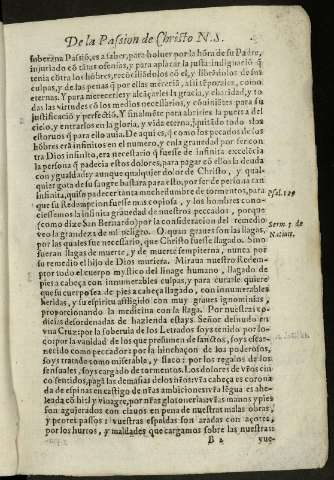 De la Passion de Christo N.S.
soberana Passiõ, es a saber, para boluer por la hõra de su Padre,
injuriado cõ tãtas ofensas, y para aplacar la justa indignaciõ q̃
tenia cõtra los hõbres, recõciliãdolos cõ el, y librãndolos de sus
culpas, y de las penas q̃ por ellas merecíã, assi tẽporales, como
eternas. Y para merecerles y alcãçarles la gracia, y charidad, y to
das las virtudes cõ los medios necessarios, y cõuiniẽtes para su
justificaciõ y perfectiõ. Y finalmẽte para abrirles la puerta del
cielo, y entrarlos en la gloria, y vida eterna, quitãdo todo los
estoruos q̃ para ello auia. De aqui es, q̃ como los pecados de los
hõbres erã infinitos en el numero, y cada grauedad por ser con
tra Dios infinito, era necessario q̃ fuesse de infinita excelẽcia
la persona q̃ padecia estos dolores, para pagar cõ ellos la deuda
con ygualdad: y aunque qualquier dolor de Christo, y qual
quier gota de su sangre bastara para esto, por ser de persona tan
infinita, quiso padecer tanta muchedumbre de tormentos, para
que su Redempcion fuesse mas copiosa, y los hombres cono-
ciessemos la infinita grauedad de nuestros peccados, porque
(como dize San Bernardo) por la consideracion del remedio
veo la grandeza de mi peligro. O quan graues son las llagas,
por las quales fue necessario, que Christo fuesse llagado. Sino
fueran llagas de muerte, y de muerte sempiterna, nunca por
su remedio el hijo de Dios muriera. Miraua nuestro Redem-
ptor todo el cuerpo mystico del linage humano, llagado de
pies a cabeça con innumerables culpas, y para curarle quiere
que su cuerpo sea de pies a cabeça llagado, con innumerables
heridas, y su espiritu affligido con muy graues ignominias,
proporcionando la medicina con la llaga. Por nuestras co-
dicias desordenadas de hazienda estays Señor desnudo en
vna Cruz: por la soberuia de los Letrados soys tenido por lo-
co: por la vanidad de los que presumen de santos, soys escar-
necido como peccador: por la hinchaçon de los poderosos,
soys tratado como miserable, y flaco: por los regalos de los
sensuales, soys cargado de tormentos. Los dolores de vr̃os cin
co sentidos, pagã las demasias de los nr̃os: vr̃a cabeça es corona
da de espinas en castigo de nr̃as ambiciones: vr̃a lẽgua es ahe-
leada cõ hiel y vinagre, por nr̃as glotonerias: vr̃as manos y pies
son agujerados con clauos en pena de nuestras malas obras,
y peores passos: vuestras espaldas son aradas con açotes,
por los hurtos, y maldades que cargamos sobre las nuestras:
Psal. 129
Serm. 3. de
Natiuit.
B 2